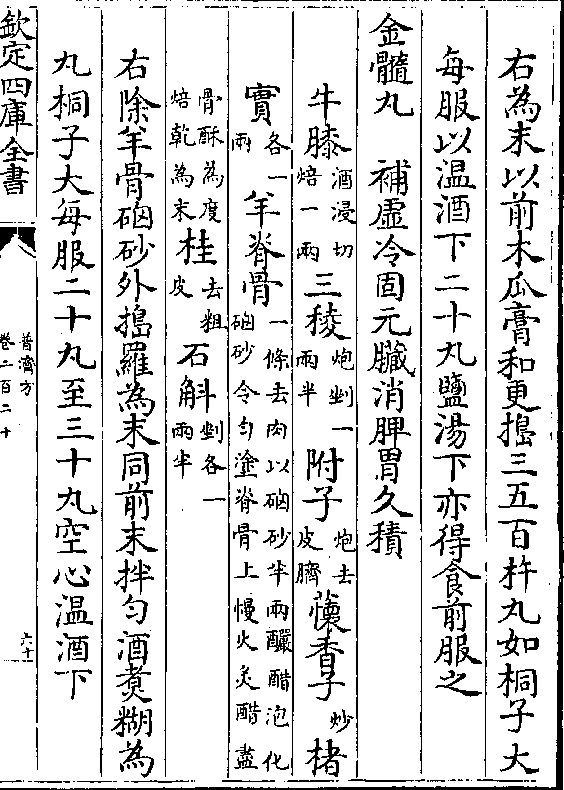 右為末以前木瓜膏和更搗三五百杵丸如桐子大
每服以温酒下二十丸鹽湯下亦得食前服之
金髓丸 補虛冷固元臟消脾胃久積
牛膝酒浸切焙一兩三稜炮剉一兩半附子炮去皮臍蘹香子炒楮
實各一兩羊脊骨一條去肉以硇砂半兩釅醋泡化硇砂令勻塗脊骨上慢火炙醋盡
骨酥為度焙乾為末桂去粗皮石斛剉各一兩半
右除羊骨硇砂外搗羅為末同前末拌勻酒煑糊為
丸桐子大每服二十丸至三十丸空心温酒下
欽定四庫全書
普濟方
卷二百二十
六十